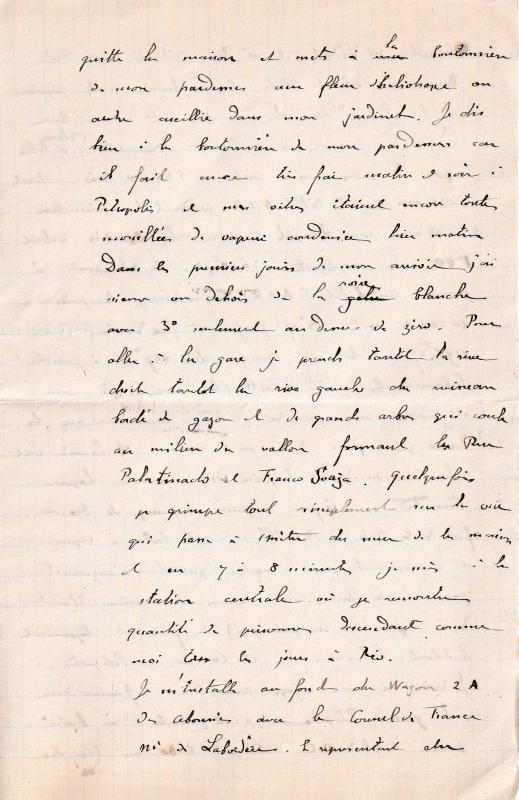 quitte la maison et mets à la boutonnière
de mon pardessus une fleur d'heliotrope ou
autre cueillie dans mon jardinet. Je dis
bien à la boutonnière de mon pardessus car
il fait encore très frais matin et soir à
Petropolis et mes vitres étaient encore toutes
mouillées de vapeur condensée hier matin
Dans les premiers jours de mon arrivée j'ai
même eu dehors de la rosée gelée blanche
avec 3° seulement au dessus de zéro. Pour
aller à la gare je prends tantôt la rive
droite tantôt la rive gauche du ruisseau
bordé de gazon et de grands arbres qui coule
au milieu du vallon formant les Rues
Palatinado et Franco Souza. Quelquefois
je grimpe tout simplement sur la voie
qui passe à 5 mètres des murs de la maison
et en 7 à 8 minutes je suis à la
station centrale où je rencontre
quantité de personnes descendant comme
moi tous les jours à Rio.
Je m'installe au fond du Wagon 2 A
des abonnés avec le Consul de France
Mr de Labordère. Le représentant du